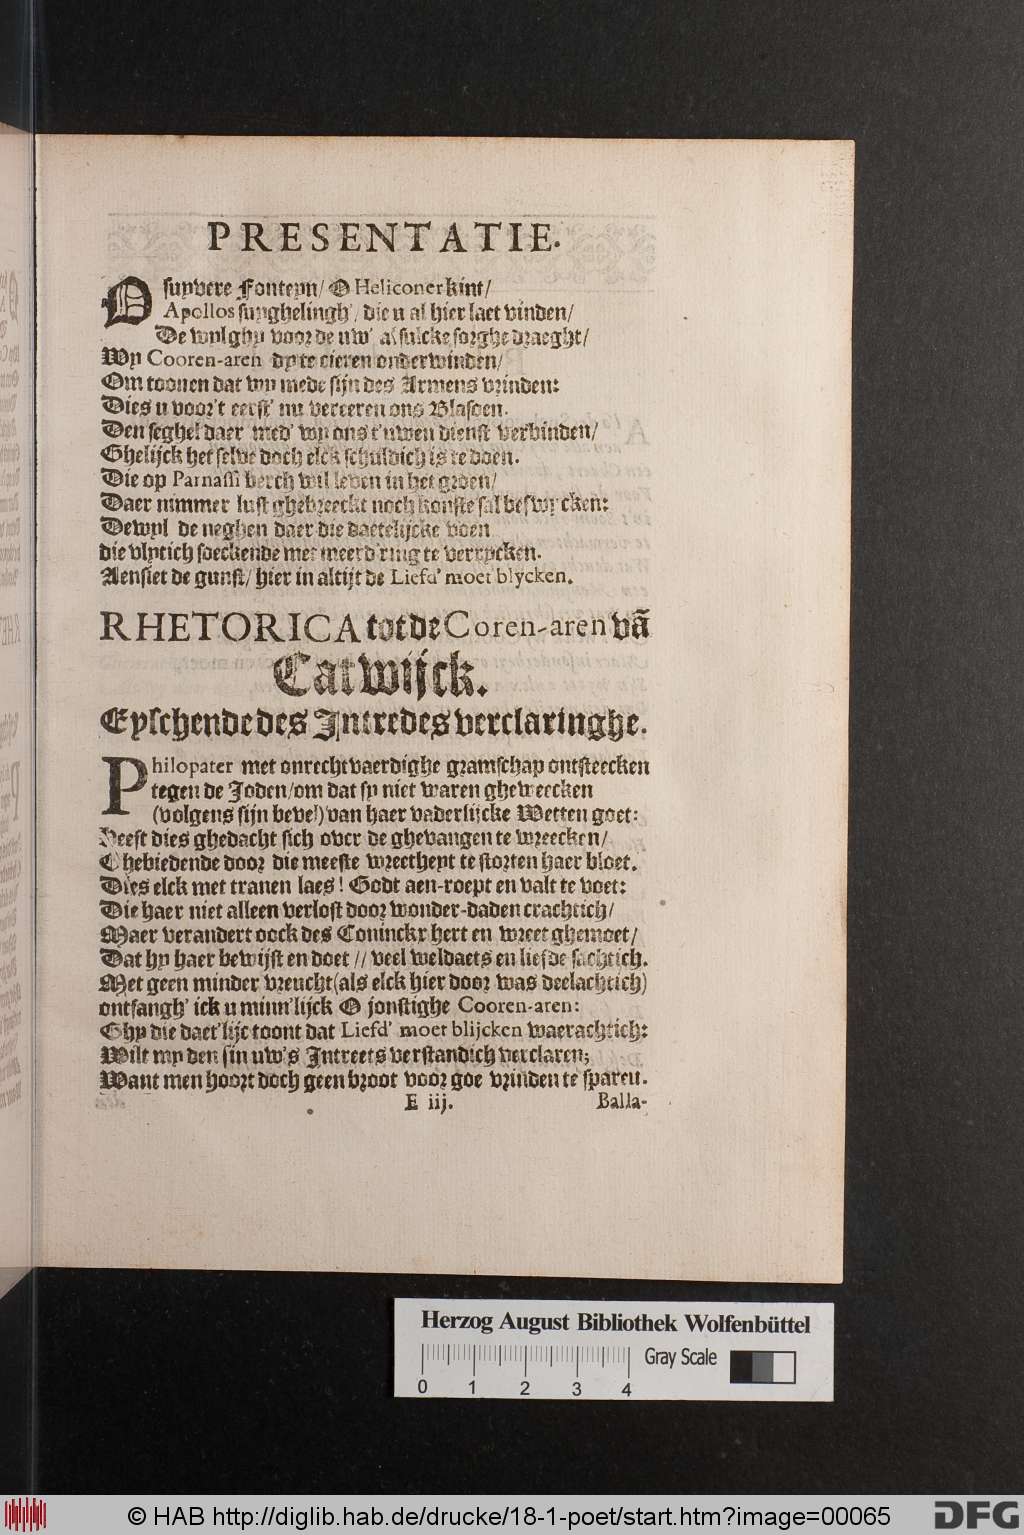 PRESENTATIE.
O suyvere Fonteyn/ O Heliconer kint/
Apollos suyghelingh', die u al hier laet vinden/
De wylghy voor de uw' alsulcke sorghe draeght/
Wy Cooren-aren dy te cieren onderwinden/
Om toonen dat wy mede sijn des Armens vrinden:
Dies u voor't eerst' nu vereeren ons Blasoen.
Den seghel daer med' wy ons t'uwen dienst verbinden/
Ghelijck het selve doch elck schuldich is te doen.
Die op Parnassi berch wil leven in het groen/
Daer nimmer lust ghebreeckt noch konste sal beswycken:
Dewyl de neghen daer die daetelijcke voen
die vlytich soeckende met meerd'ring te verrycken.
Aensiet de gunst/ hier in altijt de Liefd' moet blycken.
RHETORICA tot de Coren-aren vã
Catwijck.
Eyschende des Intredes verclaringhe.
Philopater met onrechtvaerdighe gramschap ontsteecken
tegen de Joden/om dat sy niet waren gheweecken
(volgens sijn bevel) van haer vaderlijcke Wetten goet:
Heeft dies ghedacht sich over de ghevangen te wreecken/
Ghebiedende door die meeste wreetheyt te storten haer bloet.
Dies elck met tranen laes! Godt aen-roept en valt te voet:
Die haer niet alleen verlost door wonder-daden crachtich/
Maer verandert oock des Coninckx hert en wreet ghemoet/
Dat hy haer bewijst en doet // veel weldaets en liefde sachtich.
Met geen minder vreucht (als elck hier door was deelachtich)
ontfangh' ick u minn'lijck O jonstighe Cooren-aren:
Ghy die daet'lijc toont dat Liefd' moet blijcken waerachtich:
Wilt my den sin uw's Intreets verstandich verclaren;
Want men hoort doch geen broot voor goe vrinden te sparen.
E iij. Balla-
Herzog August Bibliothek Wolfenbüttel
Gray Scale
0 1 2 3 4
© HAB http://diglib.hab.de/drucke/18-1-poet/start.htm?image=00065
DFG